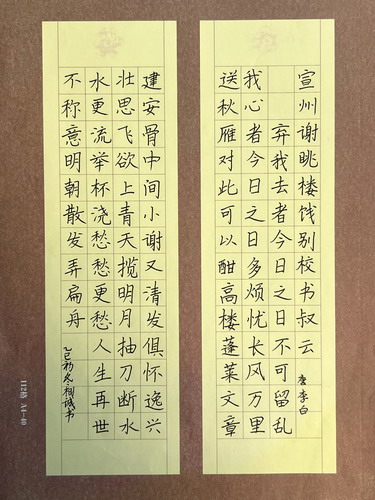 宣州谢眺楼饯别校书叔云
唐李白
弃我去者今日之日不可留乱
我心者今日之日多烦忧长风万里
送秋雁对此可以酣高楼蓬莱文章
建安骨中间小谢又清发俱怀逸兴
壮思飞欲上青天揽明月抽刀断水
水更流举杯浇愁愁更愁人生再世
不称意明朝散发弄扁舟
乙巳初冬相诚书
112格 A4-40